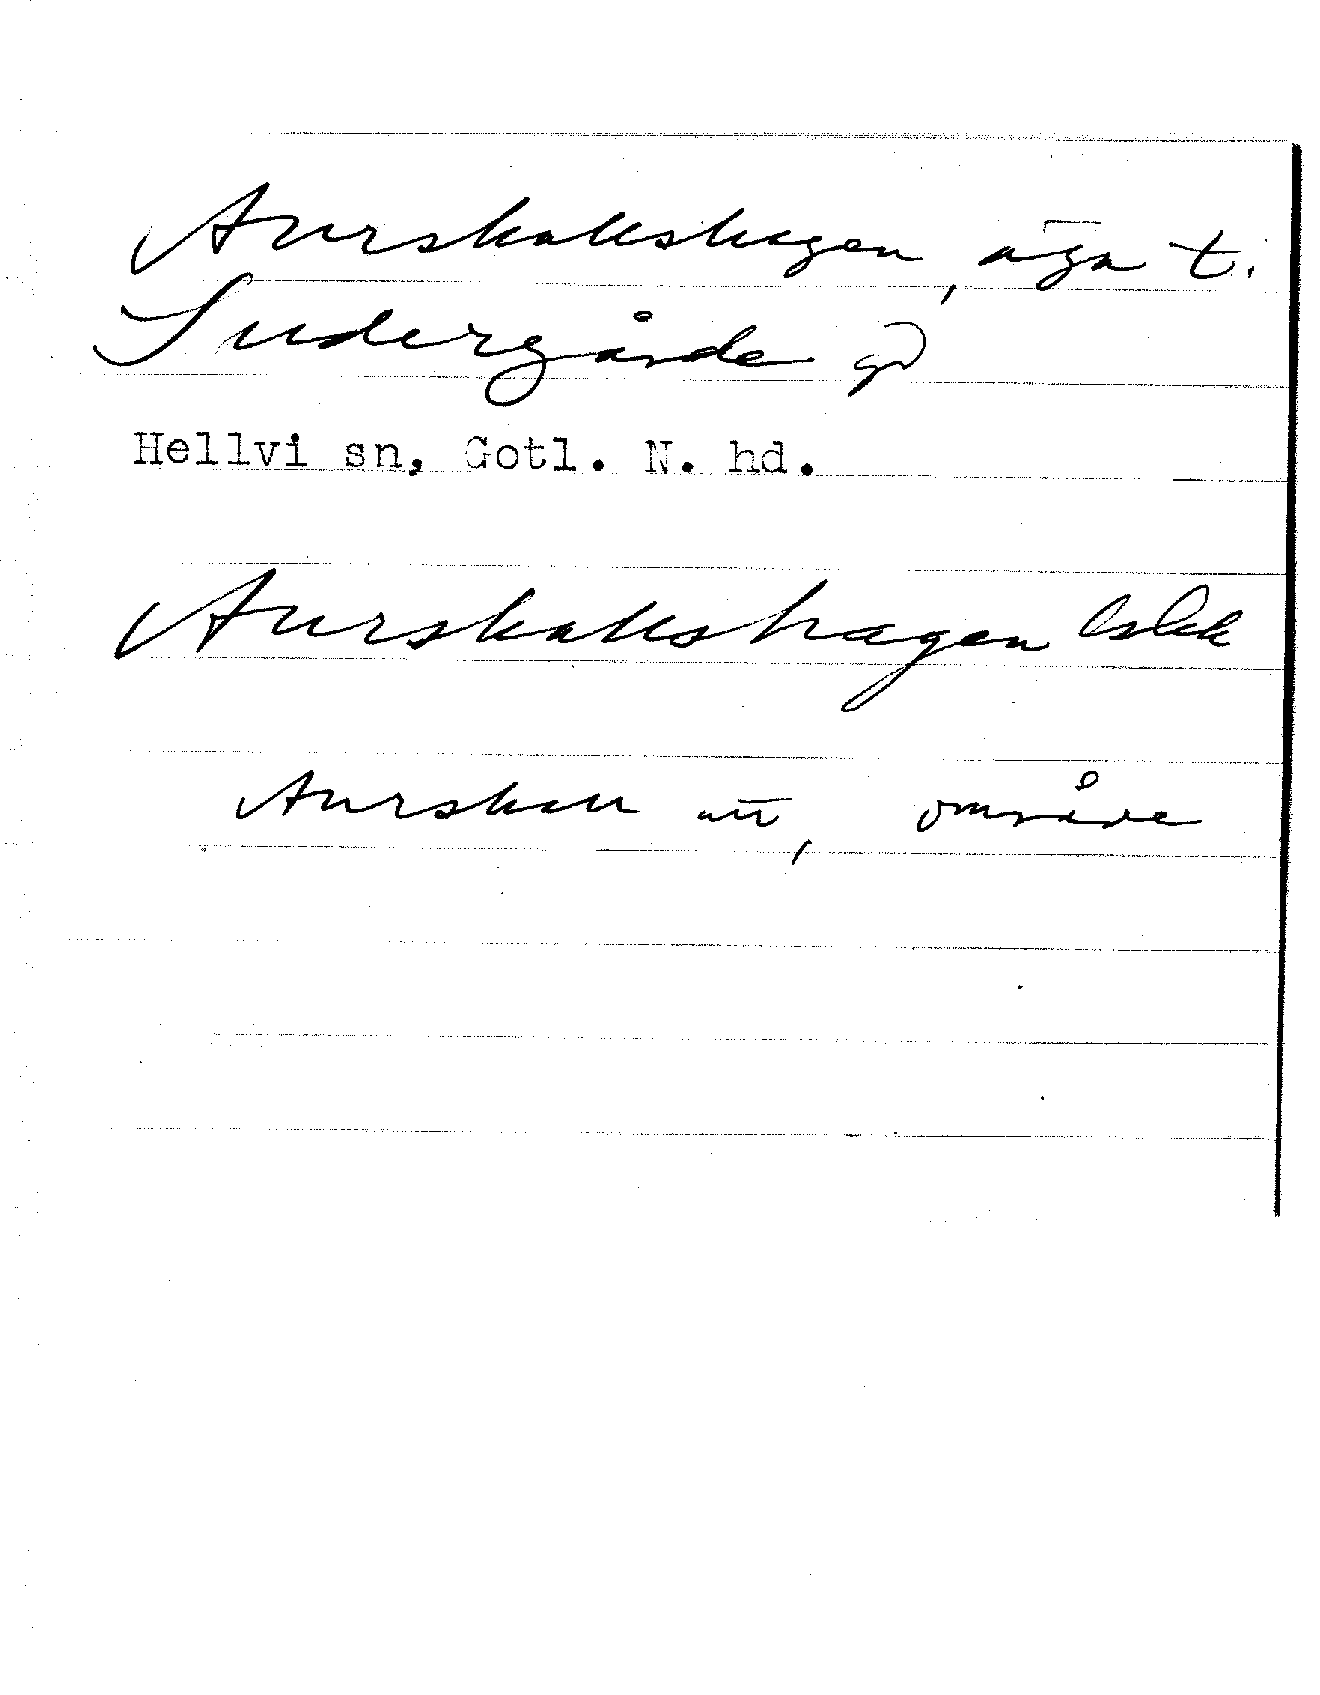 Aurskallshagen, äga t.
Sudergårda gd
Hellvi sn, Gotl. N. hd.
Aurskallshagen
Aurskall område